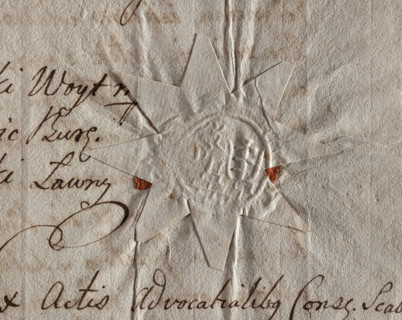 ki Woyt m
ic Burg.
ki Lawny
x Actis Advocatialibq Consq. Scab